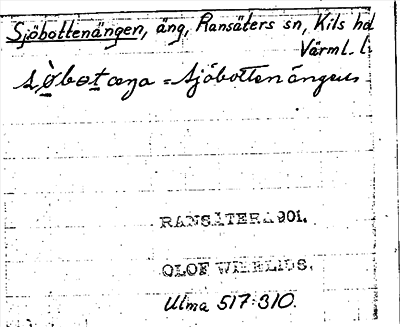 Sjöbottenängen, äng, Ransäters sn, Kils hd
Värml. l.
= Sjöbottenängen
RANSÄTER 1901.
OLOF WIKELIUS.
Ulma 517:310.